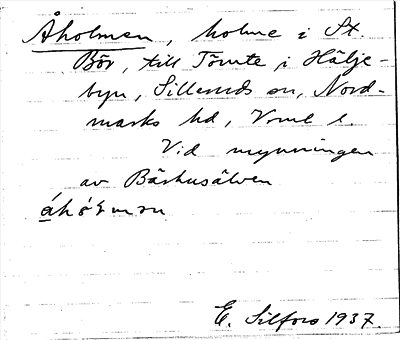 Åholmen, holme i St.
Bör, till Tomte i Hälje-
byn, Silleruds sn, Nord-
marks hd, Vrml l.
Vid mynningen
av Bäshusälven
E. Silfors 1937.